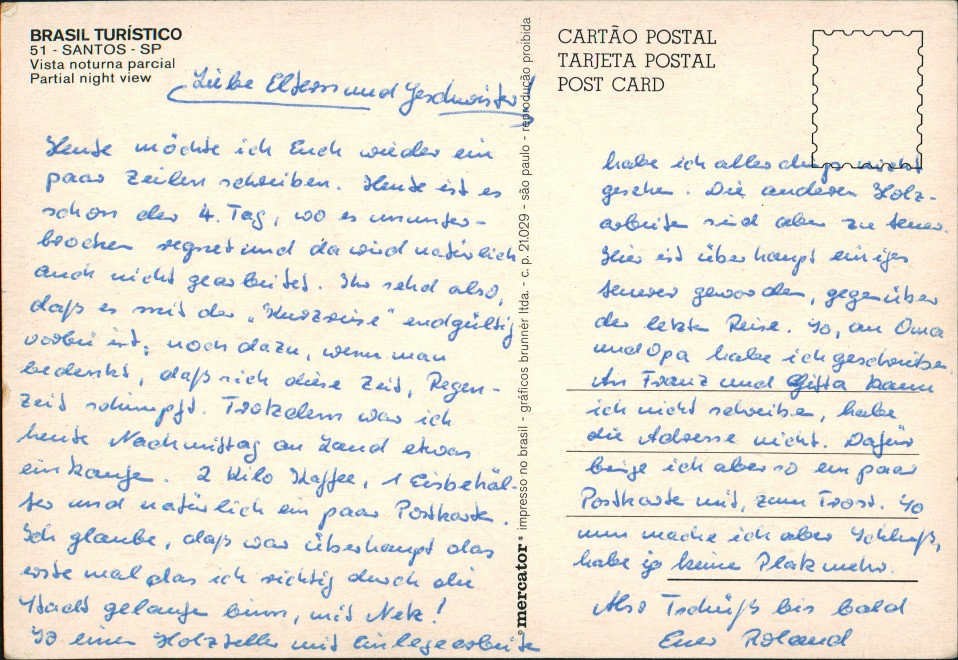 BRASIL TURÍSTICO
51 - SANTOS - SP
Vista noturna parcial
Partial night view
Liebe Eltern und Geschwister!
Heute möchte ich Euch wieder ein
paar Zeilen schreiben. Heute ist es
schon der 4. Tag, wo es ununter-
brochen regnet und da wird natürlich
auch nicht gearbeitet. Ihr seht also,
daß es mit der „Kurzreise" endgültig
vorbei ist, noch dazu, wenn man
bedenkt, daß sich diese Zeit, Regen-
zeit schimpft. Trotzdem war ich
heute Nachmittag an Land etwas
einkaufen. 2 Kilo Kaffee, 1 Eisbehäl-
ter und natürlich ein paar Postkarten.
Ich glaube, daß war überhaupt das
erste mal das ich richtig durch die
Stadt gelaufen binn, mit Netz!
So einen Holzteller mit Einlegearbeite
mercator® impresso no brasil - gráficos brunner ltda. - c. p. 21.029 - são paulo - reprodução proibida
CARTÃO POSTAL
TARJETA POSTAL
POST CARD
habe ich allerdings nicht
gesehen. Die anderen Holz-
arbeiten sind aber zu teuer.
Hier ist überhaupt einiges
teuerer geworden, gegenüber
der letzten Reise. So, an Oma
und Opa habe ich geschrieben.
An Franz und Gitta kann
ich nicht schreiben, habe
die Adresse nicht. Dafür
bringe ich aber so ein paar
Postkarten mit, zum Trost. So
nun mache ich aber Schluß,
habe ja keine Platz mehr.
Also Tschüß bis bald
Euer Roland